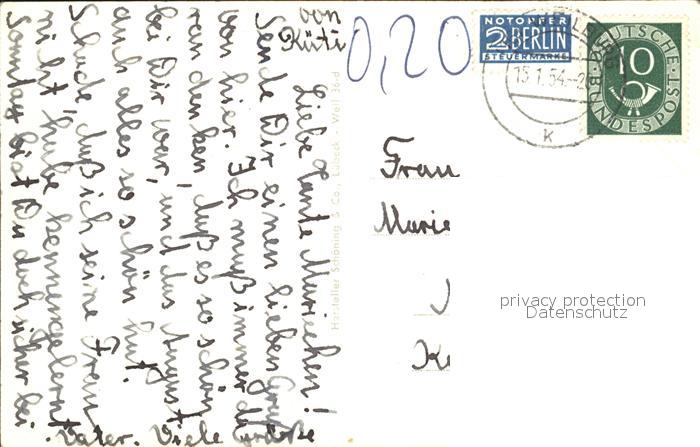 Liebe Tante Mariechen!
Sende Dir einen lieben Gruß
von hier. Ich muß immer da
ran denken, daß es so schön
bei Dir war, und das August
auch alles so schön hat.
Schade, daß ich seine Frau
nicht habe kennengelernt
Sonntag bist Du doch sicher bei
Vater. Viele Grüße
von
Küti
0,20
NOTOPFER
2 BERLIN
STEUERMARKE
15.1.54
k
DEUTSCHE
BUNDESPOST
10
Frau
Marie
Hersteller Schöning & Co., Lübeck
privacy protection
Datenschutz